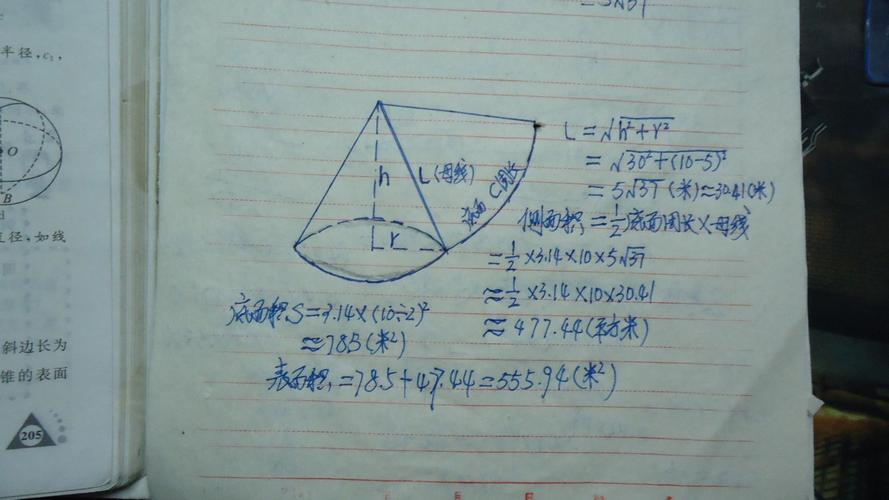 =5√37
半径,c₁,
O
B
d
直径,如线
斜边长为
锥的表面
205
h
L(母线)
r
底面C周长
L=√h²+r²
=√30²+(10-5)²
=5√37(米)≈30.41(米)
侧面积=1/2底面周长×母线
=1/2×3.14×10×5√37
≈1/2×3.14×10×30.41
≈477.44(平方米)
底面积S=3.14×(10÷2)²
≈78.5(米²)
表面积=78.5+477.44=555.94(米²)